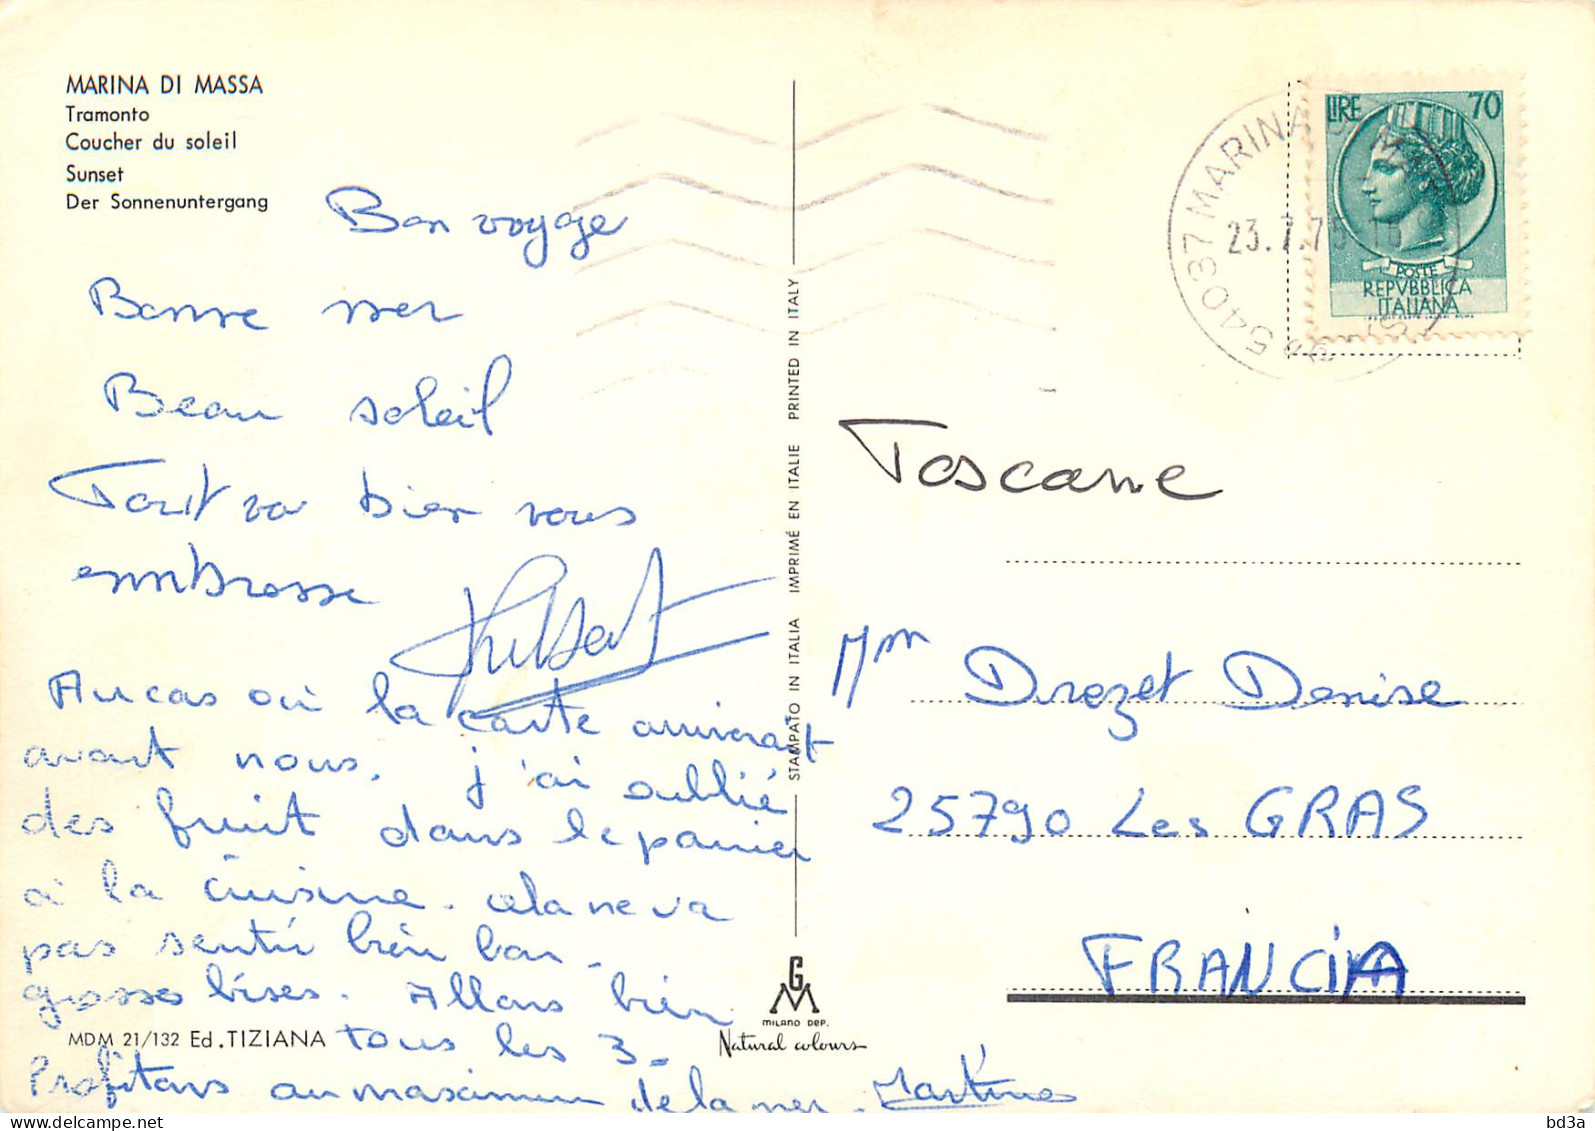 MARINA DI MASSA
Tramonto
Coucher du soleil
Sunset
Der Sonnenuntergang
Bon voyage
Bonne mer
Beau soleil
Tout va bien vous
embrasse
Au cas où la carte arriverait
avant nous. j'ai oublié
des fruit dans le panier
à la cuisine. cela ne va
pas sentir bien bon.
grosses bises. Allons bien
tous les 3.
Profitons au maximum de la mer. Martine
MDM 21/132 Ed. TIZIANA
STAMPATO IN ITALIA IMPRIMÉ EN ITALIE PRINTED IN ITALY
GM
MILANO DEP.
Natural colours
LIRE 70
POSTE
REPVBBLICA
ITALIANA
54037 MARINA DI MA
23.7.75
Toscane
Mm Drezet Denise
25790 Les GRAS
FRANCIA
bd3a